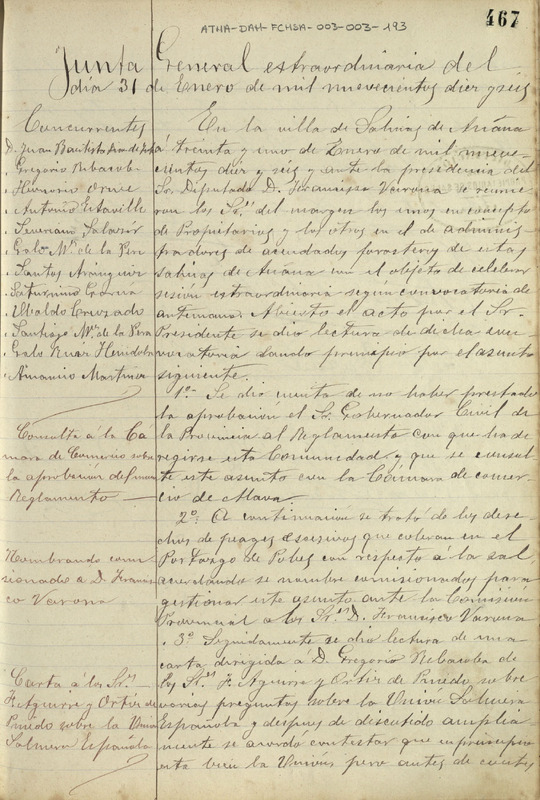 467
ATHA-DAH-FCHSA-003-003-193
Junta General extraordinaria del
día 31 de Enero de mil nuevecientos diez y seis
Concurrentes
D. Juan Bautista
" Gregorio Rebacoba
" Honorio
" Antonio Estavillo
" Severiano Salazar
" Galo Mª. de la Pera
" Santos Aránguiz
" Saturnino
" Ubaldo Cruzado
" Santiago Mª. de la Pera
" Galo Ruiz
" Amancio Martinez
En la villa de Salinas de Añana
á treinta y uno de Enero de mil nueve-
cientos diez y seis y ante la presidencia del
Sr. Diputado D. Francisco Varona se reunie-
ron los Sres. del margen los unos en concepto
de Propietarios y los otros en el de adminis-
tradores de acendados forasteros de estas
Salinas de Añana con el objeto de celebrar
sesión extraordinaria según convocatoria de
antemano. Abierto el acto por el Sr.
Presidente se dio lectura de dicha con-
vocatoria dando principio por el asunto
siguiente.
1º.- Se dio cuenta de no haber prestado
la aprobación el Sr. Gobernador Civil de
la Provincia al Reglamento con que ha de
regirse esta Comunidad y que se consul-
te este asunto con la Cámara de comer-
cio de Alava.
Consulta á la Cá-
mara de Comercio sobre
la aprobación del
Reglamento —
2º. A continuación se trató de los dere-
chos de peages escesivos que cobran en el
Portazgo de Pobes con respecto á la sal
acordándo se nombre comisionados para
gestionar este asunto ante la Comisión
Provincial a los Sres. D. Francisco Varona
Nombrando comi-
sionado a D. Francis-
co Varona
3º Seguidamente se dio lectura de una
carta dirigida á D. Gregorio Rebacoba de
los Sres. F. Aguirre y Ortiz de Pinedo sobre
varias preguntas sobre la Unión Salinera
Española y despues de discutido amplia-
mente se acordó contestar que en principio
esta bien la Unión pero antes de
Carta a los Sres.
F. Aguirre y Ortiz de
Pinedo sobre la Unión
Salinera Española